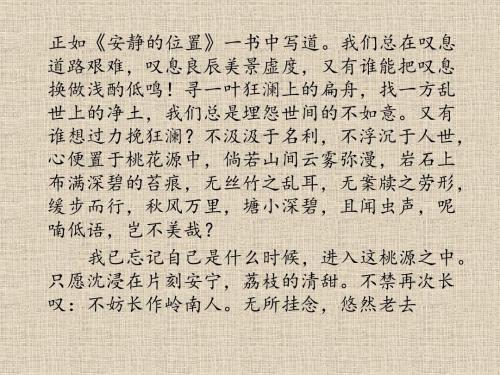 正如《安静的位置》一书中写道。我们总在叹息
道路艰难，叹息良辰美景虚度，又有谁能把叹息
换做浅酌低鸣！寻一叶狂澜上的扁舟，找一方乱
世上的净土，我们总是埋怨世间的不如意。又有
谁想过力挽狂澜？不汲汲于名利，不浮沉于人世，
心便置于桃花源中，倘若山间云雾弥漫，岩石上
布满深碧的苔痕，无丝竹之乱耳，无案牍之劳形，
缓步而行，秋风万里，塘小深碧，且闻虫声，呢
喃低语，岂不美哉？
我已忘记自己是什么时候，进入这桃源之中。
只愿沈浸在片刻安宁，荔枝的清甜。不禁再次长
叹：不妨长作岭南人。无所挂念，悠然老去